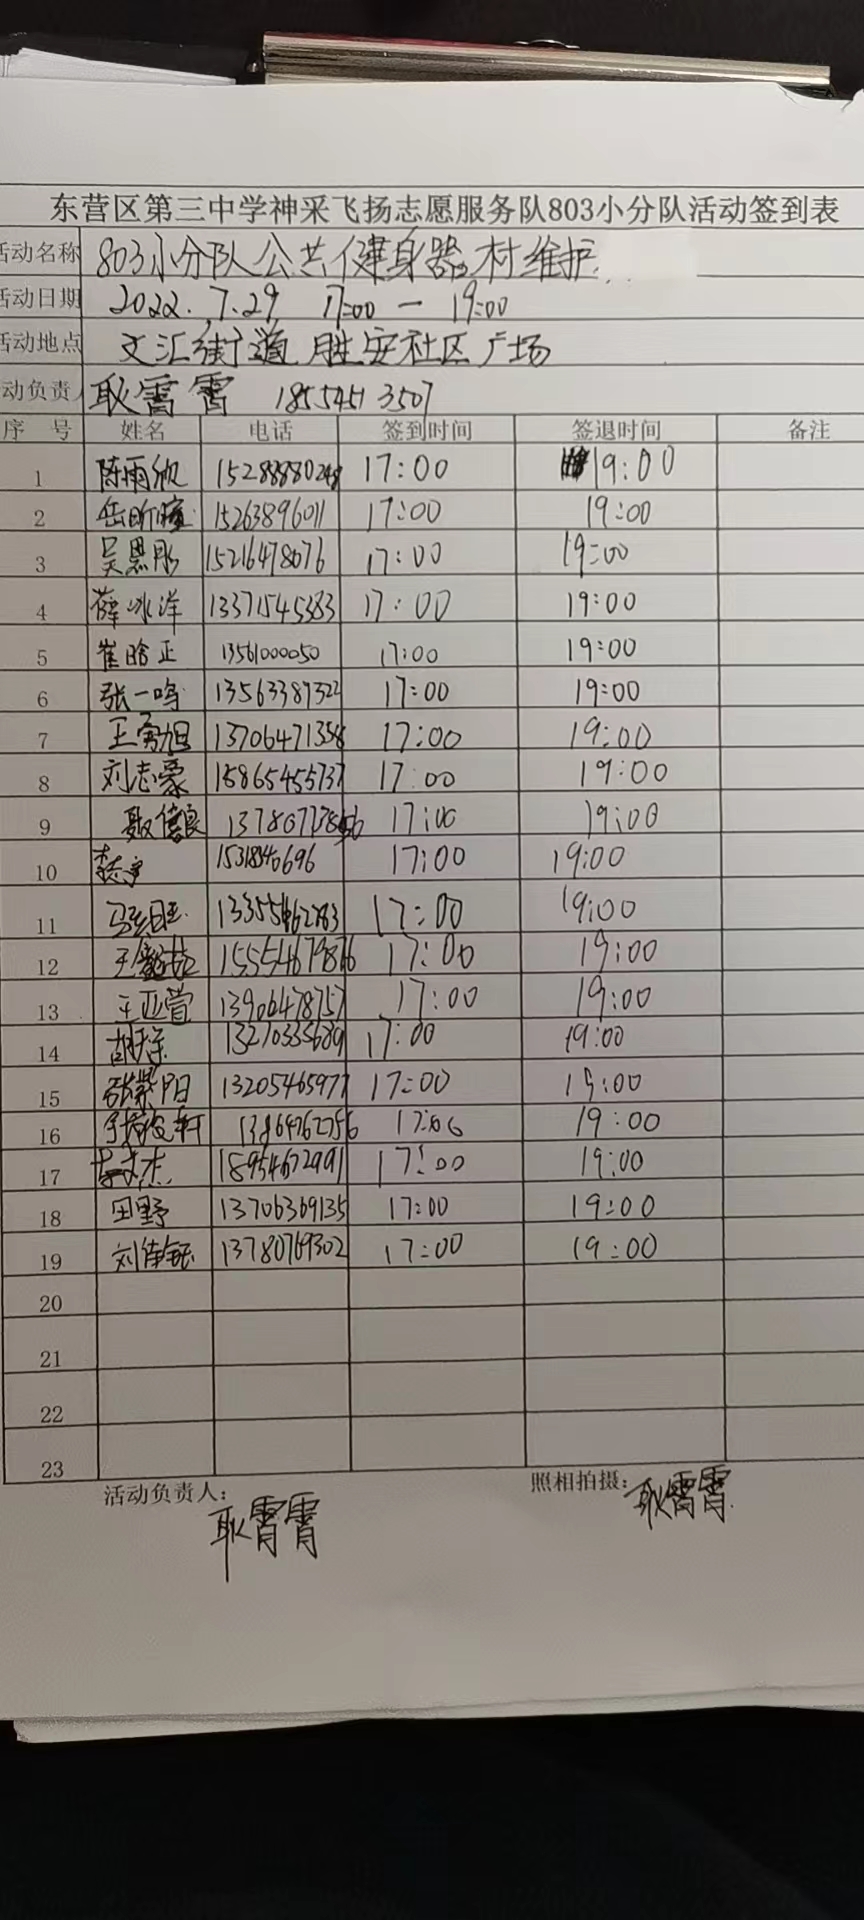 东营区第三中学神采飞扬志愿服务队803小分队活动签到表
活动名称 803小分队公共健身器材维护
活动日期 2022.7.29 17:00 — 19:00
活动地点 文汇街道胜安社区广场
活动负责人 耿霄霄 18554513507
序号 姓名 电话 签到时间 签退时间 备注
1 陈雨欣 17:00 19:00
2 岳昕暄 15263896011 17:00 19:00
3 吴思彤 15216478076 17:00 19:00
4 薛冰洋 13371545383 17:00 19:00
5 崔晗正 13561000050 17:00 19:00
6 张一鸣 13563387322 17:00 19:00
7 王勇旭 13706471358 17:00 19:00
8 刘志豪 15865455737 17:00 19:00
9 聂信良 17:00 19:00
10 17:00 19:00
11 17:00 19:00
12 17:00 19:00
13 王亚萱 13906478757 17:00 19:00
14 17:00 19:00
15 张紫阳 13205465977 17:00 19:00
16 17:00 19:00
17 18954672991 17:00 19:00
18 田野 13706369135 17:00 19:00
19 13780769302 17:00 19:00
20
21
22
23
活动负责人: 耿霄霄 照相拍摄: 耿霄霄